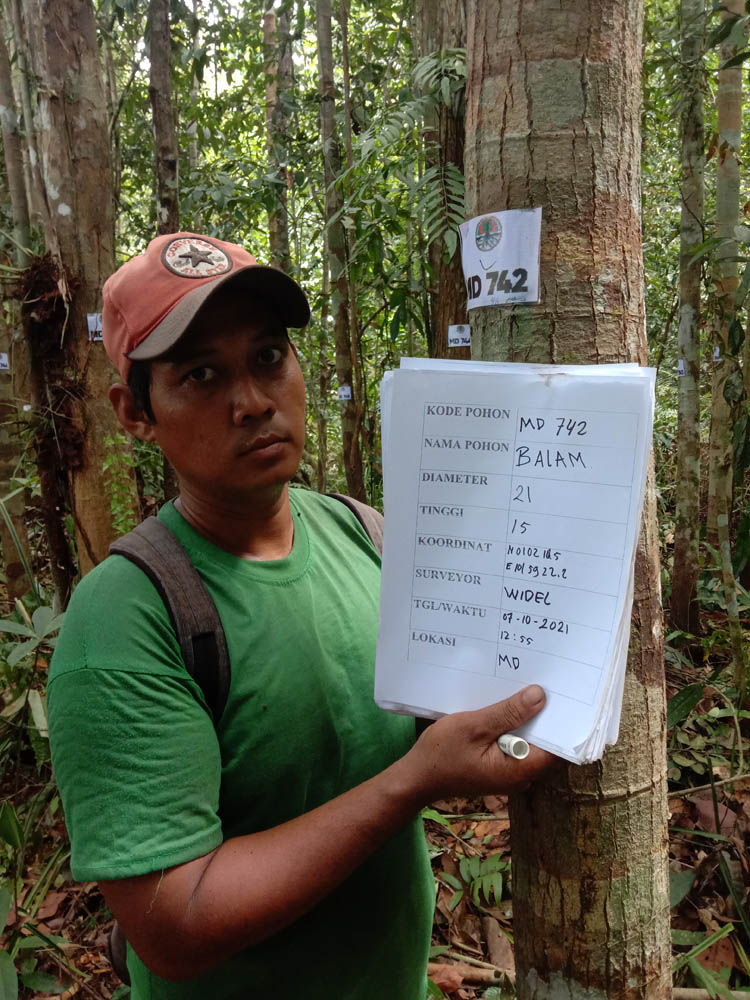 MD 742
MD 744
KODE POHON MD 742
NAMA POHON BALAM
DIAMETER 21
TINGGI 15
KOORDINAT N 0102 18.5
E 101 59 22.2
SURVEYOR WIDEL
TGL/WAKTU 07-10-2021
12:55
LOKASI MD